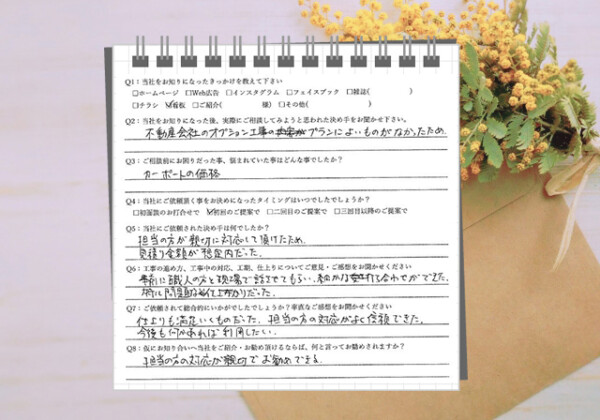 Q1：当社をお知りになったきっかけを教えて下さい
□ホームページ □Web広告 □インスタグラム □フェイスブック □雑誌(　　　)
□チラシ ☑看板 □ご紹介(　　　様) □その他(　　　)
Q2：当社をお知りになった後、実際にご相談してみようと思われた決め手をお聞かせ下さい。
不動産会社のオプション工事の プランによいものがなかったため。
Q3：ご相談前にお困りだった事、悩まれていた事はどんな事でしたか？
カーポートの価格
Q4：当社にご依頼頂く事をお決めになったタイミングはいつでしたでしょうか？
□初面談のお打合せで ☑初回のご提案で □二回目のご提案で □三回目以降のご提案で
Q5：当社にご依頼された決め手は何でしたか？
担当の方が親切に対応して頂けたため。
見積り金額が想定内だった。
Q6：工事の進め方、工事中の対応、工期、仕上りについてご意見・ご感想をお聞かせください
事前に職人の方と現場で話させてもらい、細かな打ち合わせができた。
特に問題なく仕上がりだった。
Q7：ご依頼されて総合的にいかがでしたでしょうか？率直なご感想をお聞かせください
仕上りも満足いくものだった。担当の方の対応がよく信頼できた。
今後も何かあれば利用したい。
Q8：仮にお知り合いへ当社をご紹介・お勧め頂けるならば、何と言ってお勧めされますか？
担当の方の対応が親切でお勧めできる。